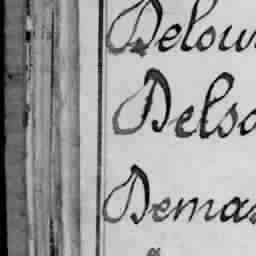 Delou
Delso
Demas